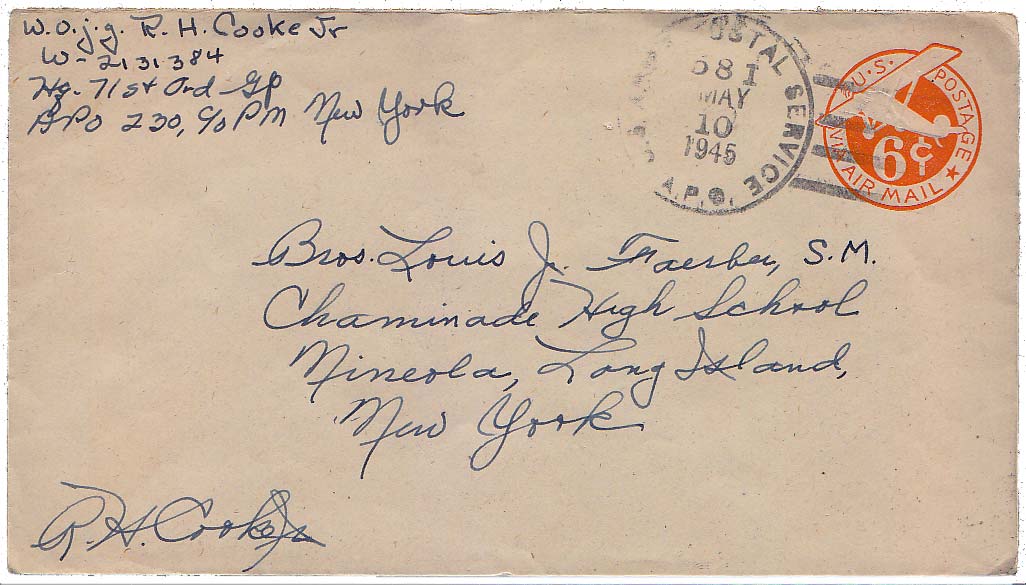 W.O.j.g. R. H. Cooke Jr
W-2131384
Hq. 71st Ord Gp
APO 230, c/o PM New York
POSTAL SERVICE
581
MAY
10
1945
A.P.O.
U.S. POSTAGE
VIA AIR MAIL
6¢
Bros. Louis J. Faerber, S.M.
Chaminade High School
Mineola, Long Island,
New York
R. H. Cooke Jr